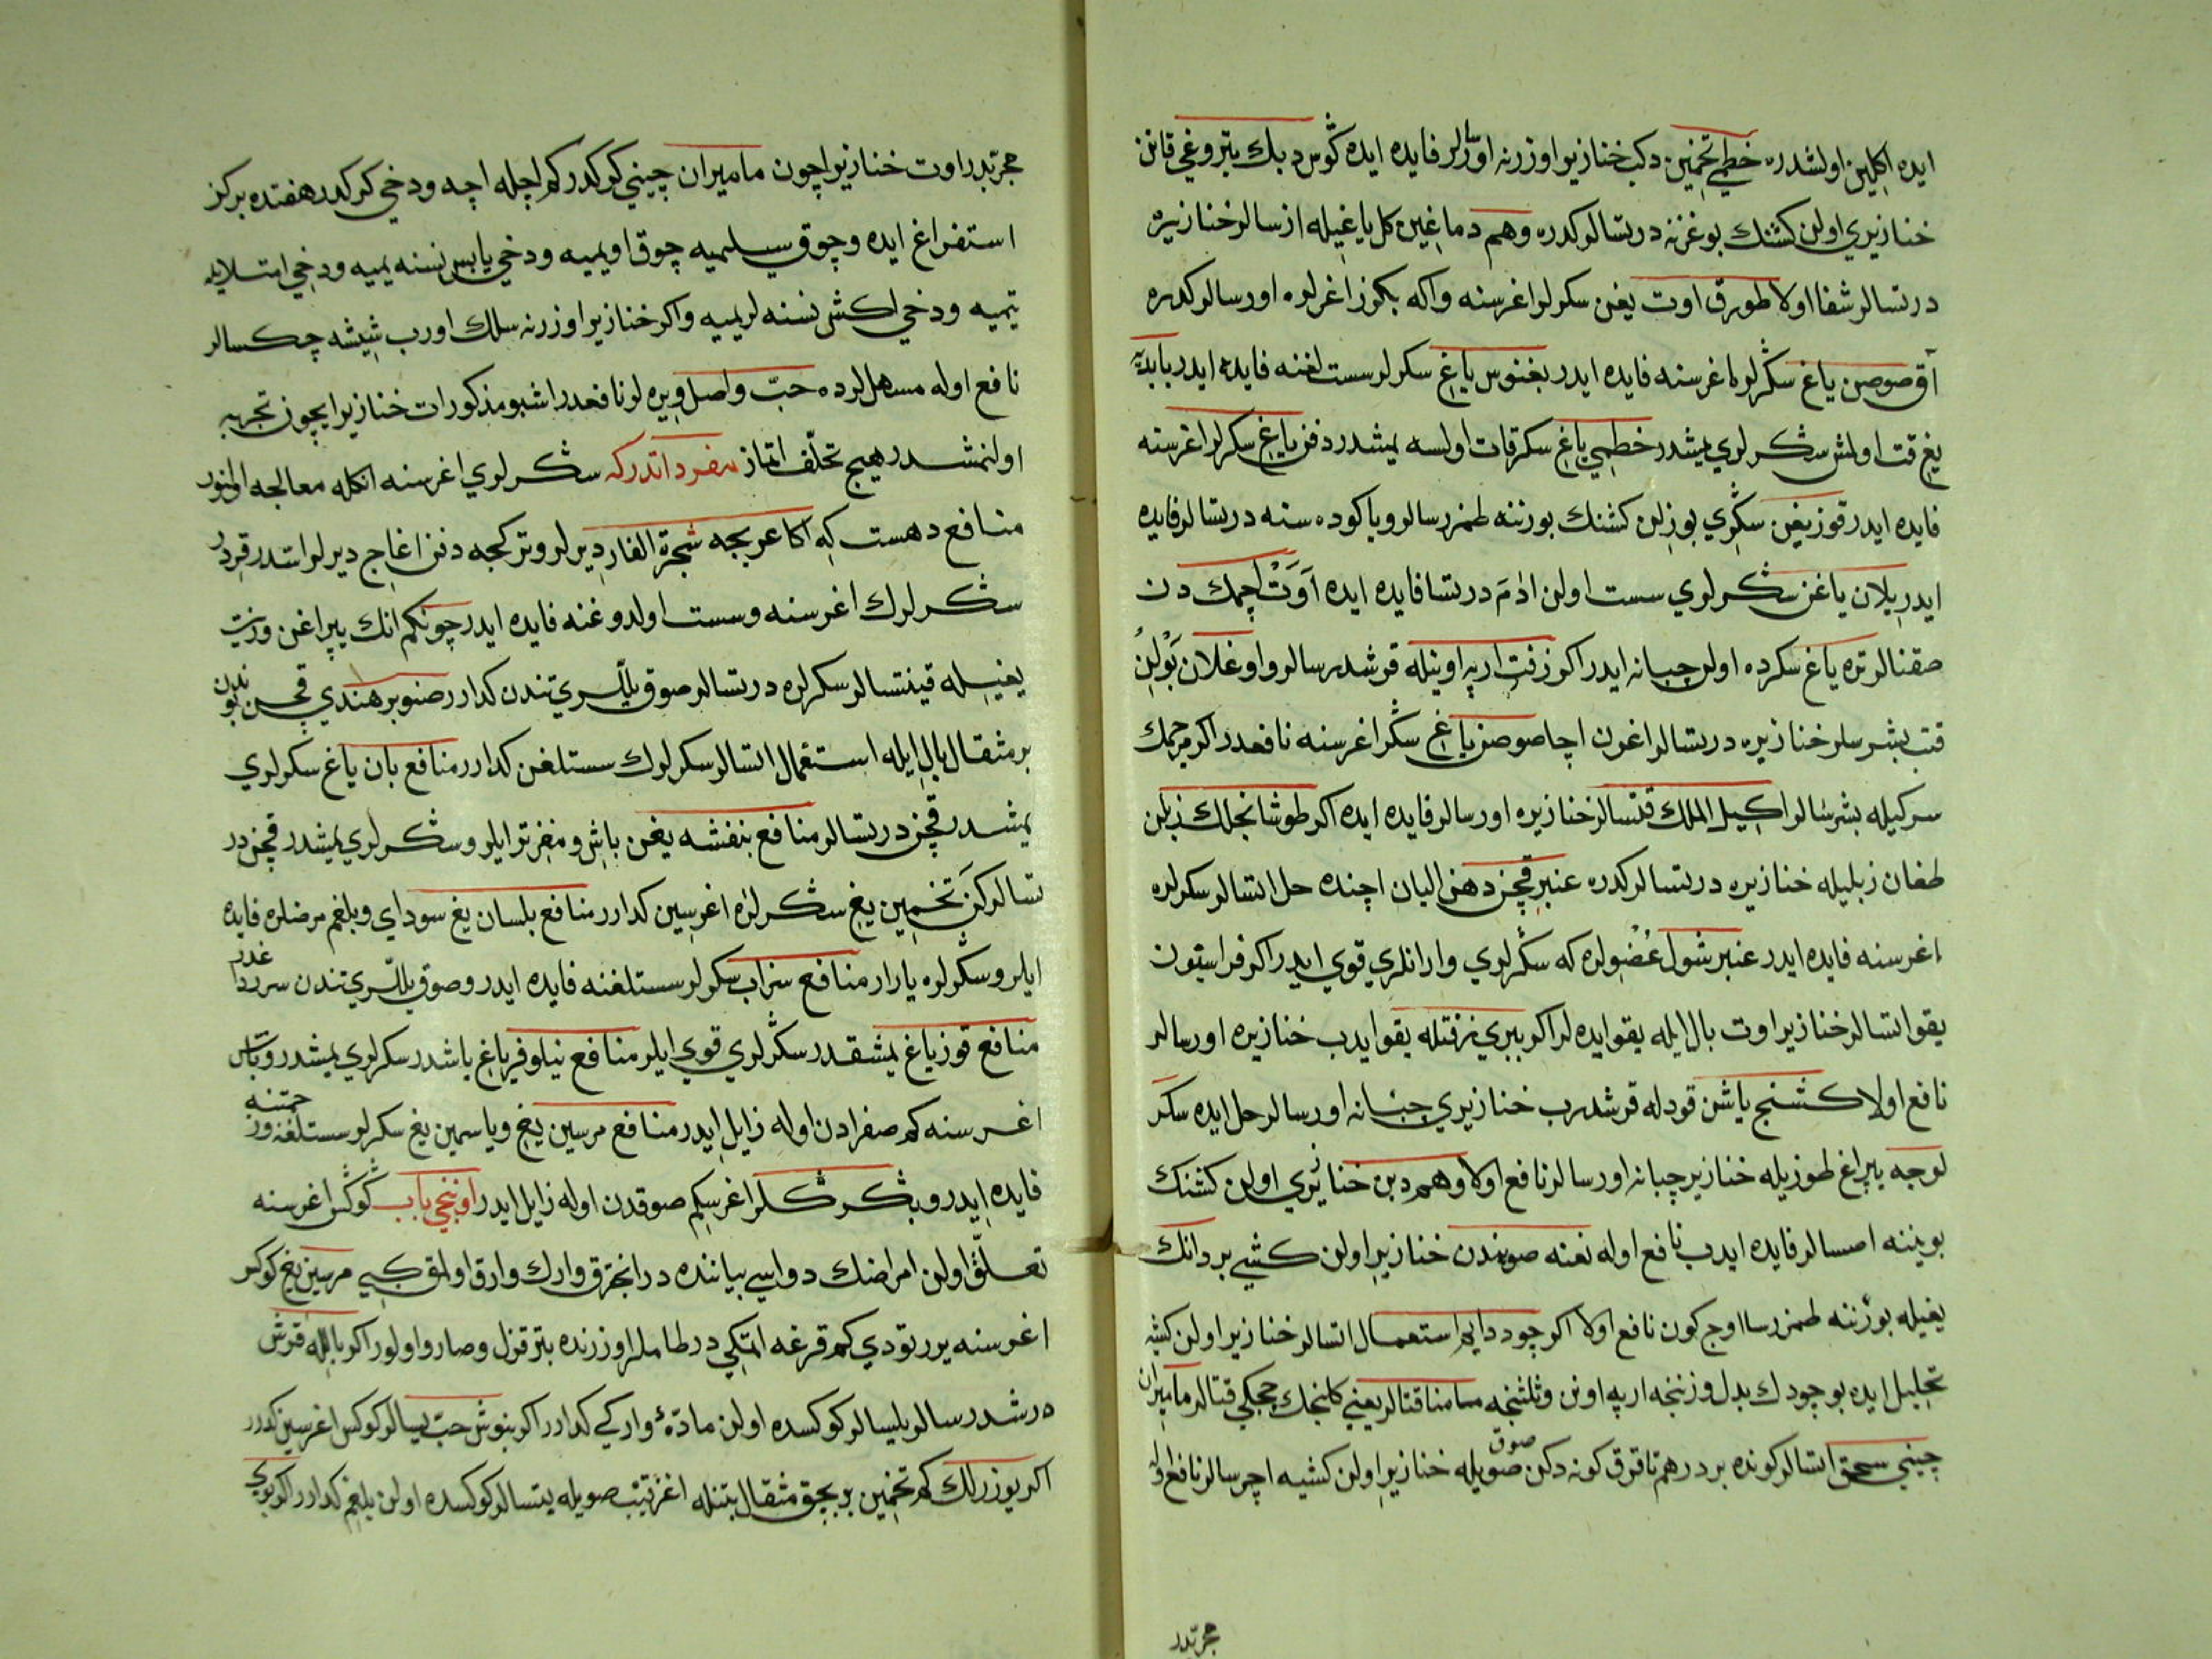 ایده اکلین اولشدره خطمی تخمین دکب خنازیر اوزرنه اورلر فایده ایده کوس دبك بتروغی قانن
خنازیری اولن کشنك بوغزنه درتسالر کدره وهم دماغین کل یاغیله ازسالر خنازیره
درتسالر شفا اولا طورق اوت یغن سکرلر اغرسنه واکه بکوز اغرلره اورسالر کدره
آق صوصن یاغ سکرلر اغرسنه فایده ایدر بغنوس یاغ سکرلر سست لغنه فایده ایدر بابدیه
یغ قت اولمش سکرلری یمشدر خطمی یاغ سکر قات اولسه یمشدر دفن یاغ سکرلر اغرسنه
فایده ایدر قوز یغین سکری بوزلن کشنك بورننه طمزرسالر ویا کوده سنه درتسالر فایده
ایدر یلان یاغن سکرلری سست اولن ادم درتسا فایده ایده اوت اچمك دن
صقنالر تره یاغ سکرده اولن جبانه ایدر اکر زفت ارپه اونیله قرشدرسالر و اوغلان بولین
قتب بشرسلر خنازیره درتسالر اغرن اچا صوصن یاغ سکر اغرسنه نافعدر اکر مرجمك
سرکیله بشرسالر اکلیل الملك قتسالر خنازیره اورسالر فایده ایده اکر طوشانجلك زبلن
طغان زبلیله خنازیره درتسالر کدره عنبر قچن دهن البان اچنده حل اتسالر سکرلره
اغرسنه فایده ایدر عنبر شول عضولره که سکرلری وار انلری قوی ایدر اکر فراسیون
یقو اتسالر خنازیر اوت بال ایله یقو ایده لر اکر بیری زفتله یقو ایدب خنازیره اورسالر
نافع اولا کشنج یاشن قودله قرشدرب خنازیری جبانه اورسالر حل ایده سکر
لوجه یپراغ طوزیله خنازیر چبانه اورسالر نافع اولا وهم دبن خنازیری اولن کشنك
بویننه اصسالر فایده ایدب نافع اوله نعنه صویندن خنازیر اولن کشی بر دانك
یغیله بورننه طمزرسا اوج کون نافع اولا اکر چوددایی استعمال اتسالر خنازیر اولن کشیه
تحلیل ایده بو چودك بدل وزننجه ارپه اونن وثلثنجه سامنا قتالر یعنی کلنجك چچکی قتالر مامیران
چینی سحق اتسالر کونده بر درهم تا قرق کونه دکن صوق صویله خنازیر اولن کشیه اچرسالر نافع اوله
مجربدر
مجربدر اوت خنازیر اچون مامیران چینی کوکدر کم اچله اچه ودخی کرکدر هفتده بر کز
استفراغ ایده وچوق سیلمیه چوق اویمیه ودخی یابس نسنه یمیه ودخی امتلایله
یتمیه ودخی اکشی نسنه لر یمیه واکر خنازیر اوزرنه سلك اورب شیشه چکسالر
نافع اوله مسهللرده حب واصل ویره لر نافعدر اشبو مذکورات خنازیر ایچون تجربه
اولنمشدر هیچ تخلف اتماز مفرداتدر که سکرلری اغرسنه انکله معالجه اولنور
منافع دهست که اکا عربجه شجرة الغار دیرلر وترکجه دفن اغاجی دیرلر استدر قردر
سکرلرك اغرسنه وسست اولدوغنه فایده ایدر چونکم انك یپراغن وزیت
یغیله قینتسالر سکرلره درتسالر صوق یللری تندن کدارر صنوبر هندی قچن بوندن
بر مثقال بال ایله استعمال اتسالر سکرلرك سستلغن کدارر منافع بان یاغ سکرلری
یمشدر قچن درتسالر منافع بنفشه یغن باش ومغز تر ایلر وسکرلری یمشدر قچن در
تسالر کن تخمین یغ سکرلره اغرسین کدارر منافع بلسان یغ سودای وبلغم مرضلره فایده
ایلر وسکرلره یارار منافع سزاب سکرلر سستلغنه فایده ایدر وصوق یللری تندن سرر داغدر
منافع قوز یاغ یمشقدر سکرلری قوی ایلر منافع نیلوفر یاغ یاشدر سکرلری یمشدر وباش
اغرسنه کم صفرادن اوله زایل ایدر منافع مرسین یغ ویاسمین یغ سکرلر سستلغنه ورحمتنه
فایده ایدر وبکر شکللر اغرسکم صوقدن اوله زایل ایدر اوننجی باب کوکس اغرسنه
تعلق اولن امراضك دواسی بیاننده در انجزق وارك وارق اولمق کبی مرسین یغ کوکر
اغرسنه یرر تودی کم قرغه اتمکی در طاملر اوزرنده بتر قزل وصارو اولور اکر بالله قرش
درشدرسالر یلیسالر کوکسده اولن مادّه وارکی کدارر اکر بنوش حب یسالر کوکس اغرسین کدرر
اکر یوزرلك کم تخمین بر بچق مثقال بتنله اغز قیتب صویله یتسالر کوکسده اولن بلغم کدارر اکر بوی